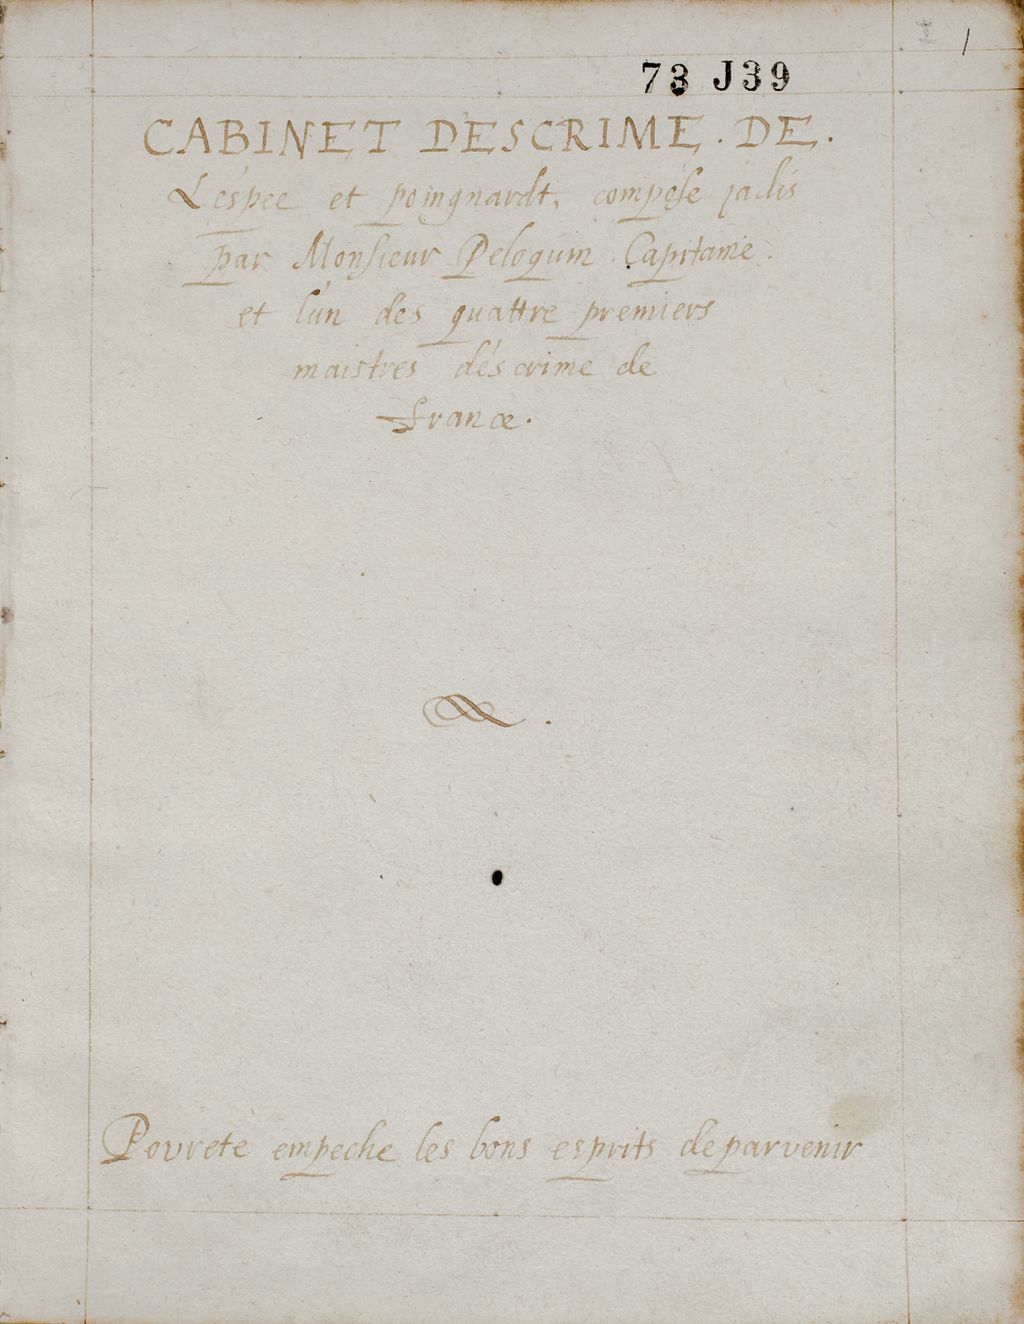 1
73 J39
CABINET DESCRIME. DE.
L'éspee et poingnardt, compose jadis
par Monsieur Peloquin. Capitaine.
et l'un des quattre premiers
maistres déscrime de
france.
Povrete empeche les bons esprits de parvenir